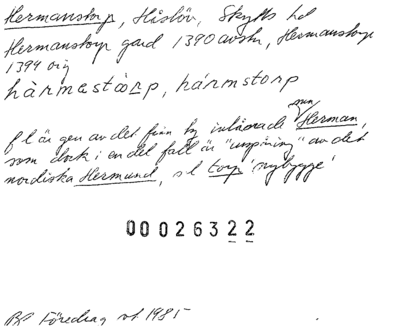 Hermanstorp, Hislöv, Skytts hd
Hermanstorp gard 1390 avskr, Hermanstorp
1394 orig
hàrmastàorp, hármstorp
mn
f l är gen av det från lty inlånade Herman,
som dock i en del fall är "ersättning" av det
nordiska Hermund, s l torp 'nybygge'
00026322
Föredrag vt 1985